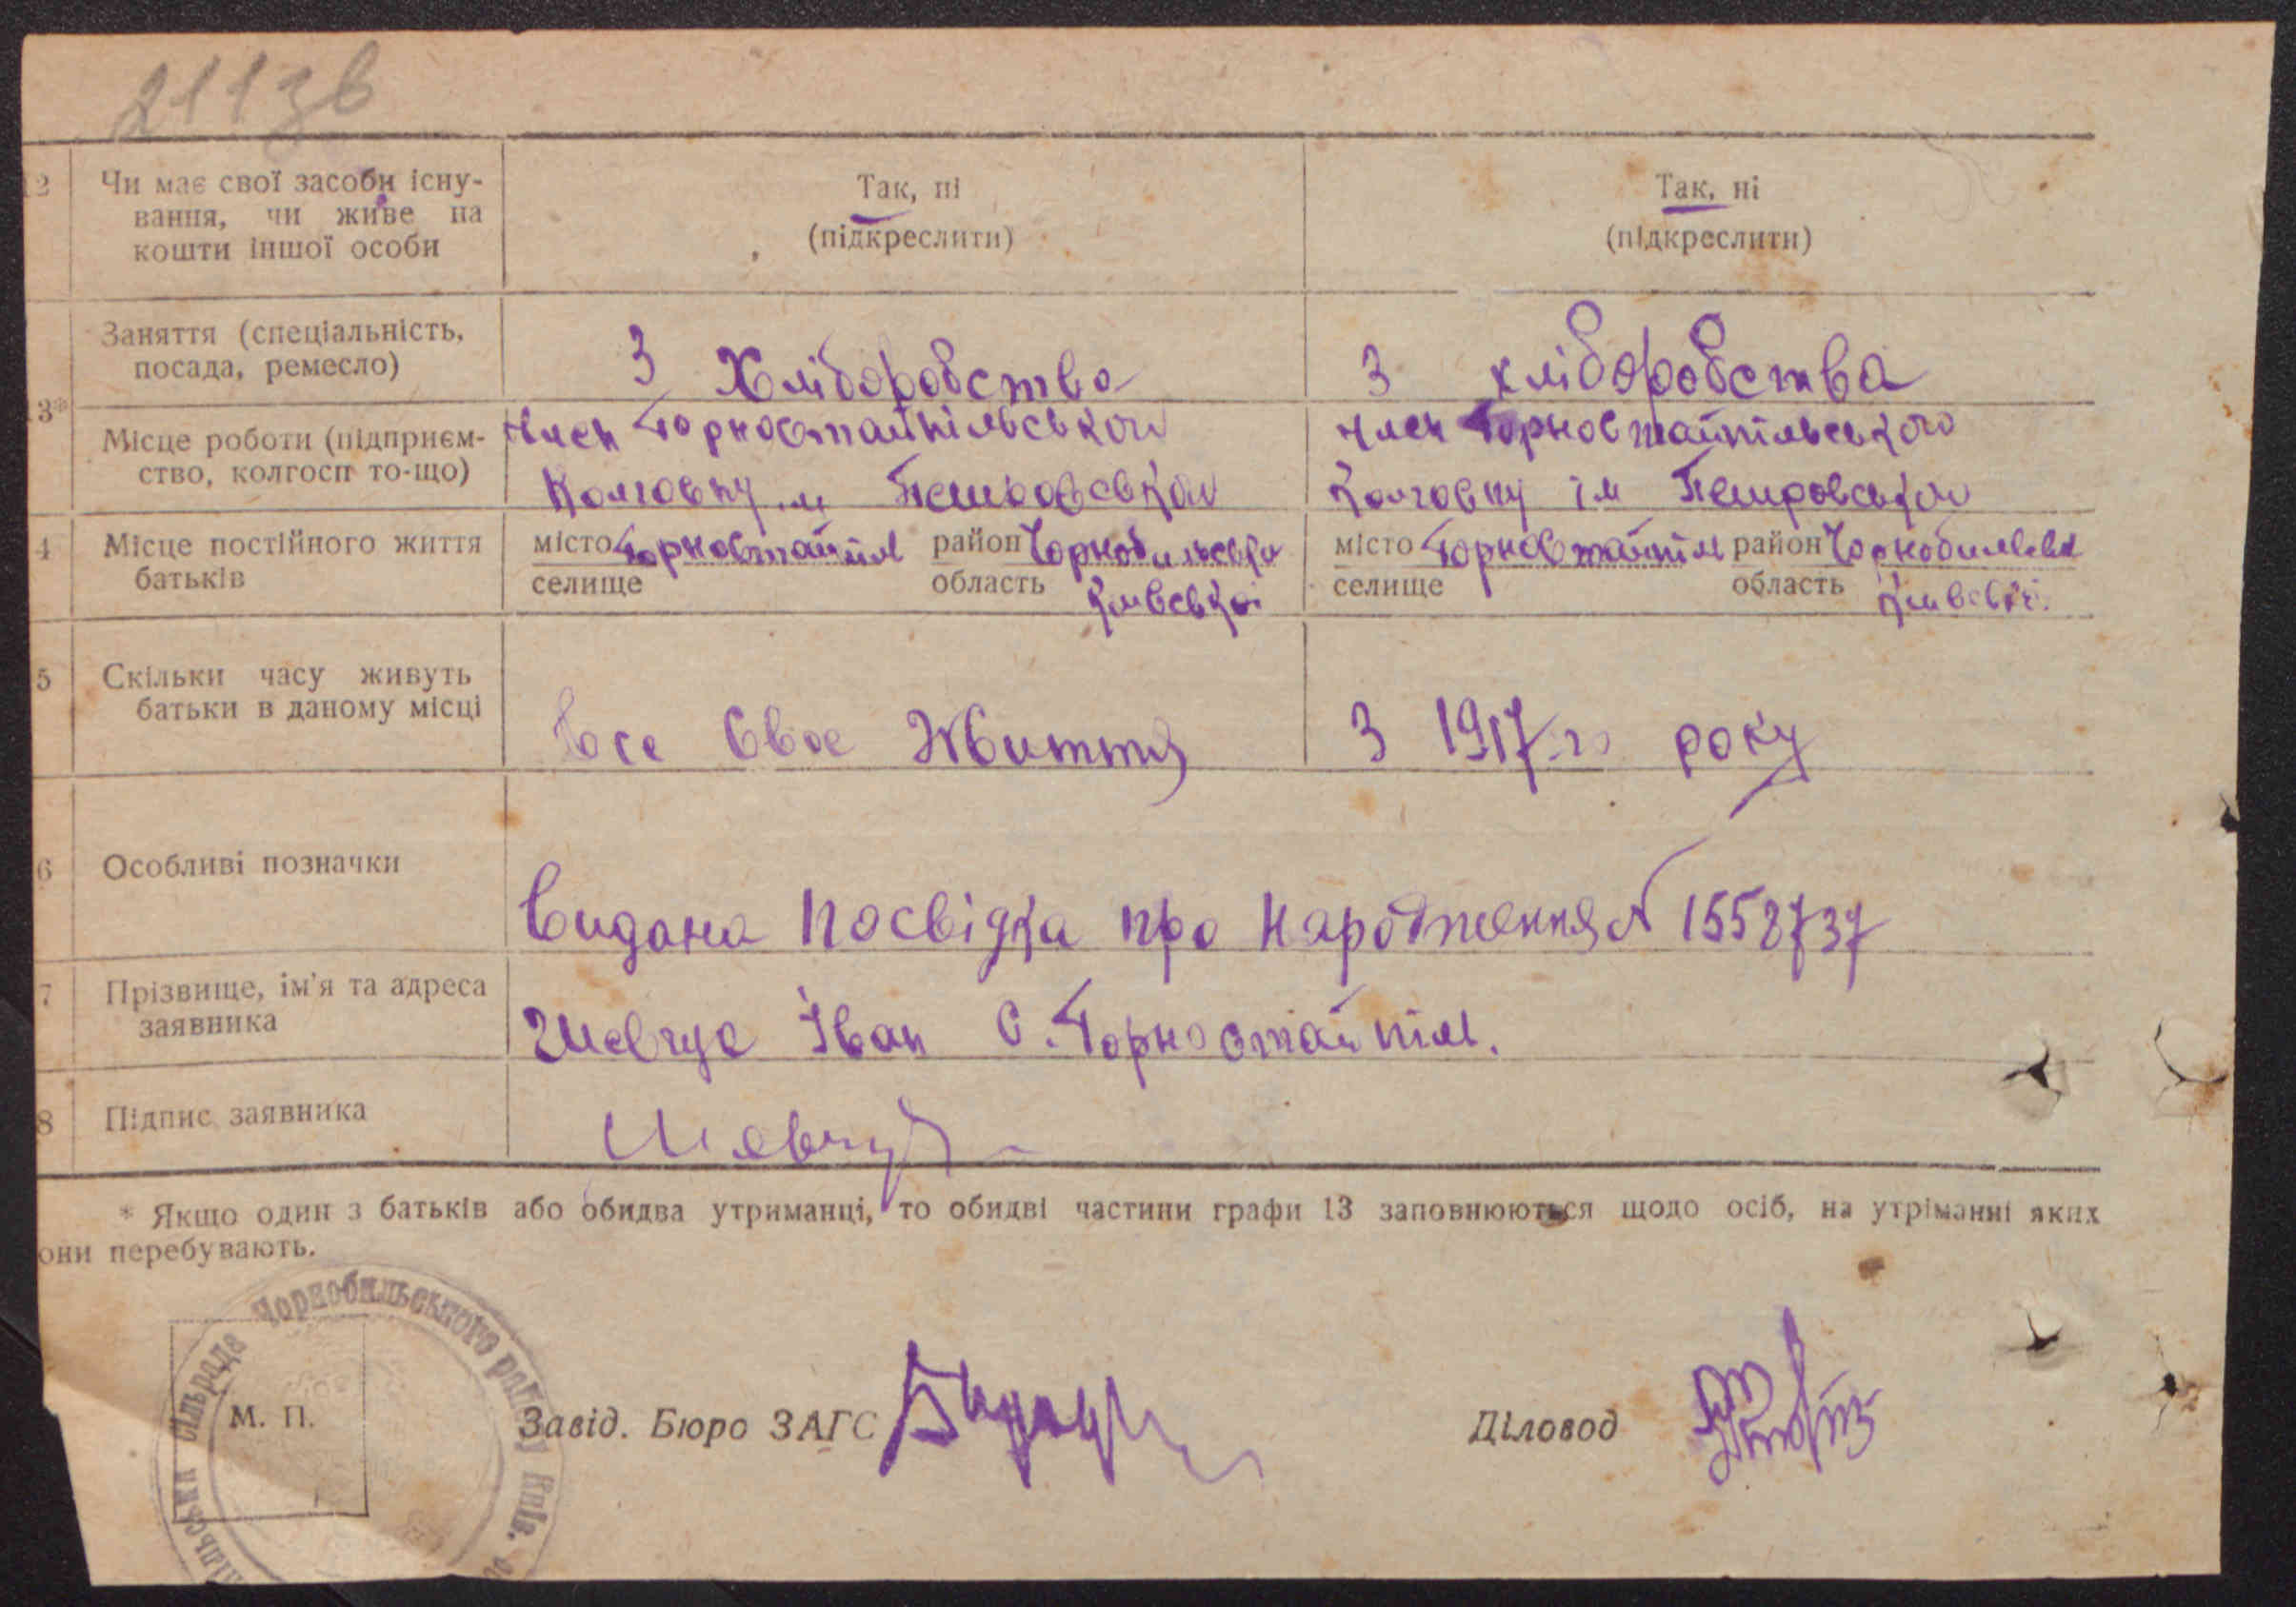 211зв
12 Чи має свої засоби існу-
вання, чи живе на
кошти іншої особи
Так, ні
(підкреслити)
Так, ні
(підкреслити)
13*
Заняття (спеціальність,
посада, ремесло)
З Хліборобства
З хліборобства
Місце роботи (підприєм-
ство, колгосп то-що)
член Горностайпільського
Колгоспу ім Петровського
член Горностайпільського
Колгоспу ім Петровського
4 Місце постійного життя
батьків
місто Горностайпіл район Чорнобильськи
селище область Київської
місто Горностайпіл район Чорнобильськ
селище область Київські
5 Скільки часу живуть
батьки в даному місці
Все Свое Життя
З 1917-го року
6 Особливі позначки
Видана Посвідка про Народження № 1558737
7 Прізвище, ім'я та адреса
заявника
Іван С. Горностайпіл.
8 Підпис заявника
* Якщо один з батьків або обидва утриманці, то обидві частини графи 13 заповнюються щодо осіб, на утріманні яких
они перебувають.
сільрада Чорнобильського району Київ.
М. П.
Завід. Бюро ЗАГС
Діловод